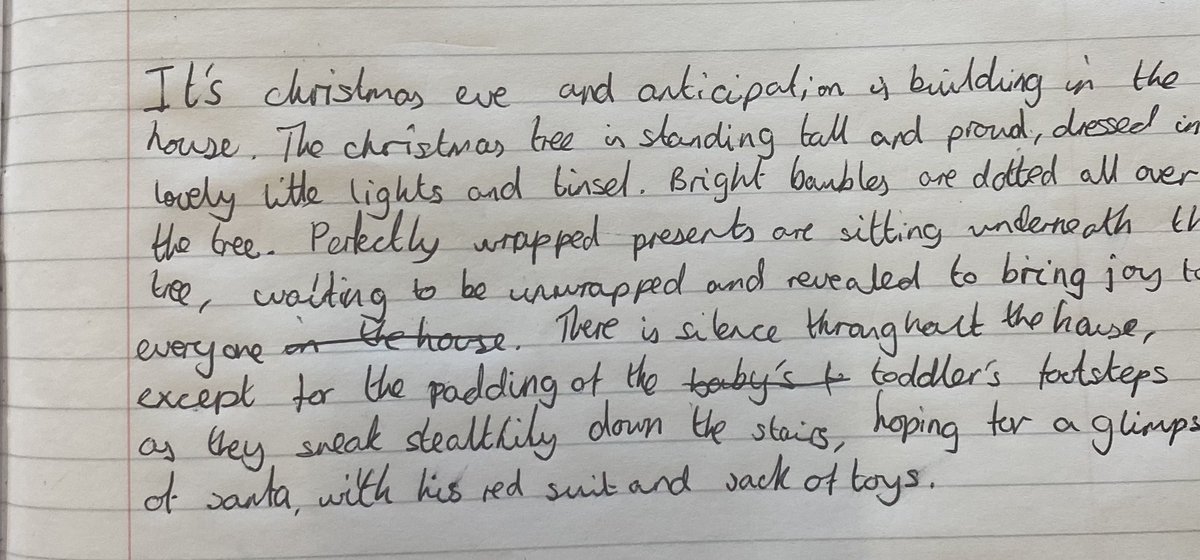 It's christmas eve and anticipation is building in the
house. The christmas tree is standing tall and proud, dressed in
lovely little lights and tinsel. Bright baubles are dotted all over
the tree. Perfectly wrapped presents are sitting underneath th
tree, waiting to be unwrapped and revealed to bring joy to
everyone in the house. There is silence throughout the house,
except for the padding of the baby's t toddler's footsteps
as they sneak stealthily down the stairs, hoping for a glimps
of santa, with his red suit and sack of toys.